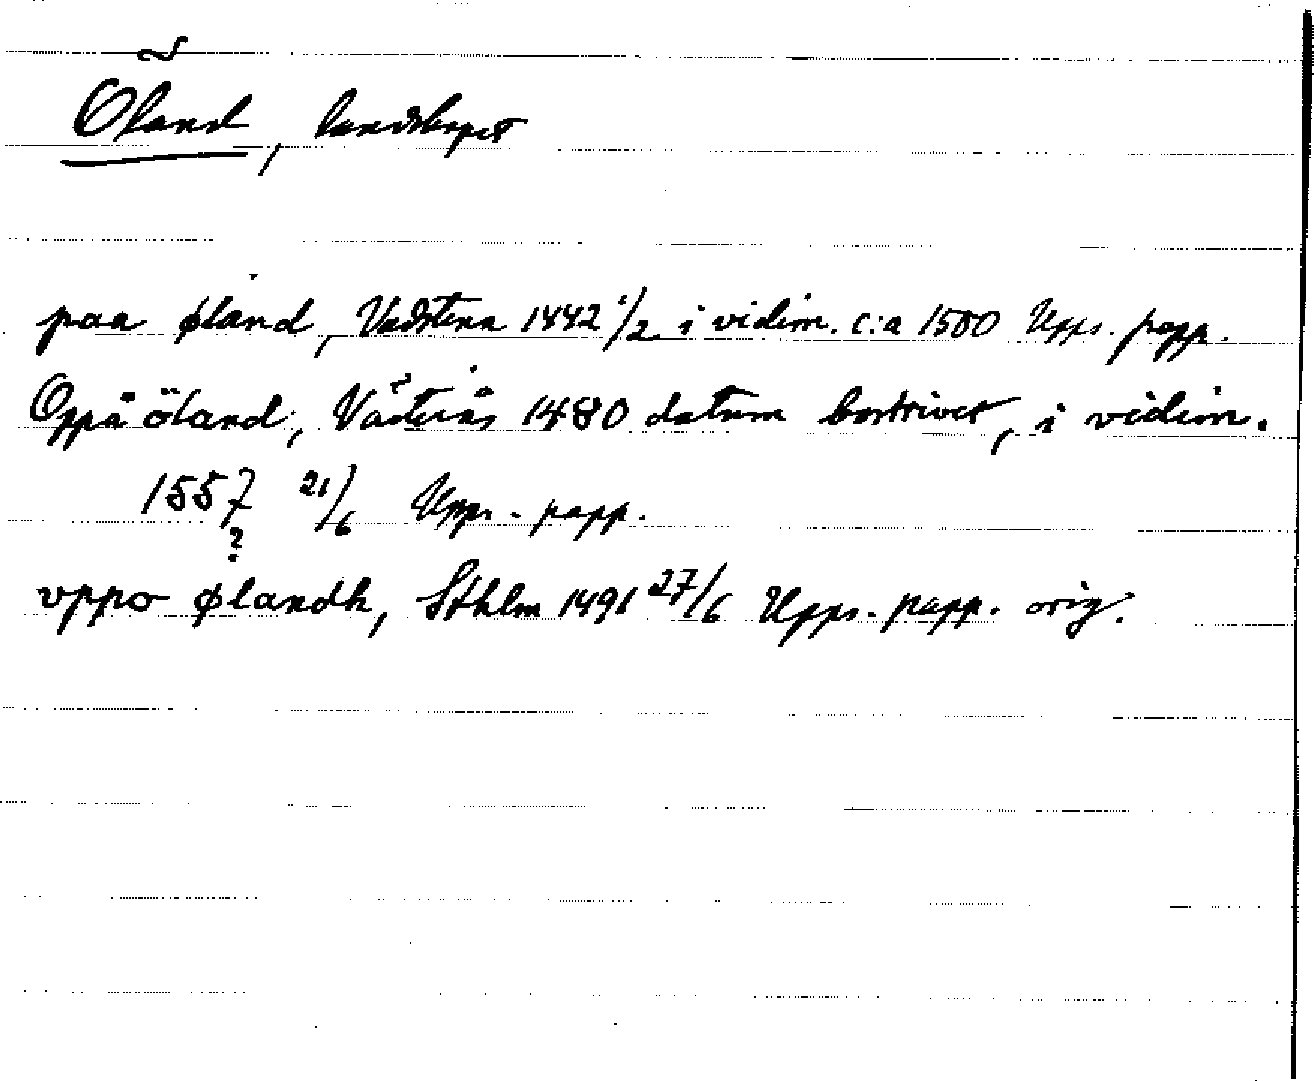 Öland, landskapet
paa øland, Vadstena 1442 1/2 i vidim. c:a 1500 Upps. papp.
Oppå öland, Västerås 1480 datum bortrivet, i vidim.
1557 21/6 Upps. papp.
?
vppo ølandh, Sthlm 1491 27/6 Upps. papp. orig.